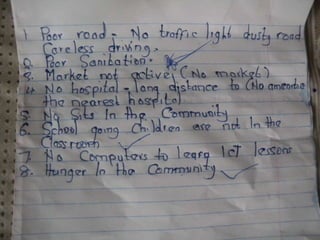 1 Poor road - No traffic light dusty road
Careless driving.
2. Poor Sanitation.
3. Market not active (No market)
4 No hospital - long distance to (No
the nearest hospital
5 No Sits In the Community
6. School going Children are not In the
Classroom
7. No Computers to learn Ict lessons
8. Hunger In the Community